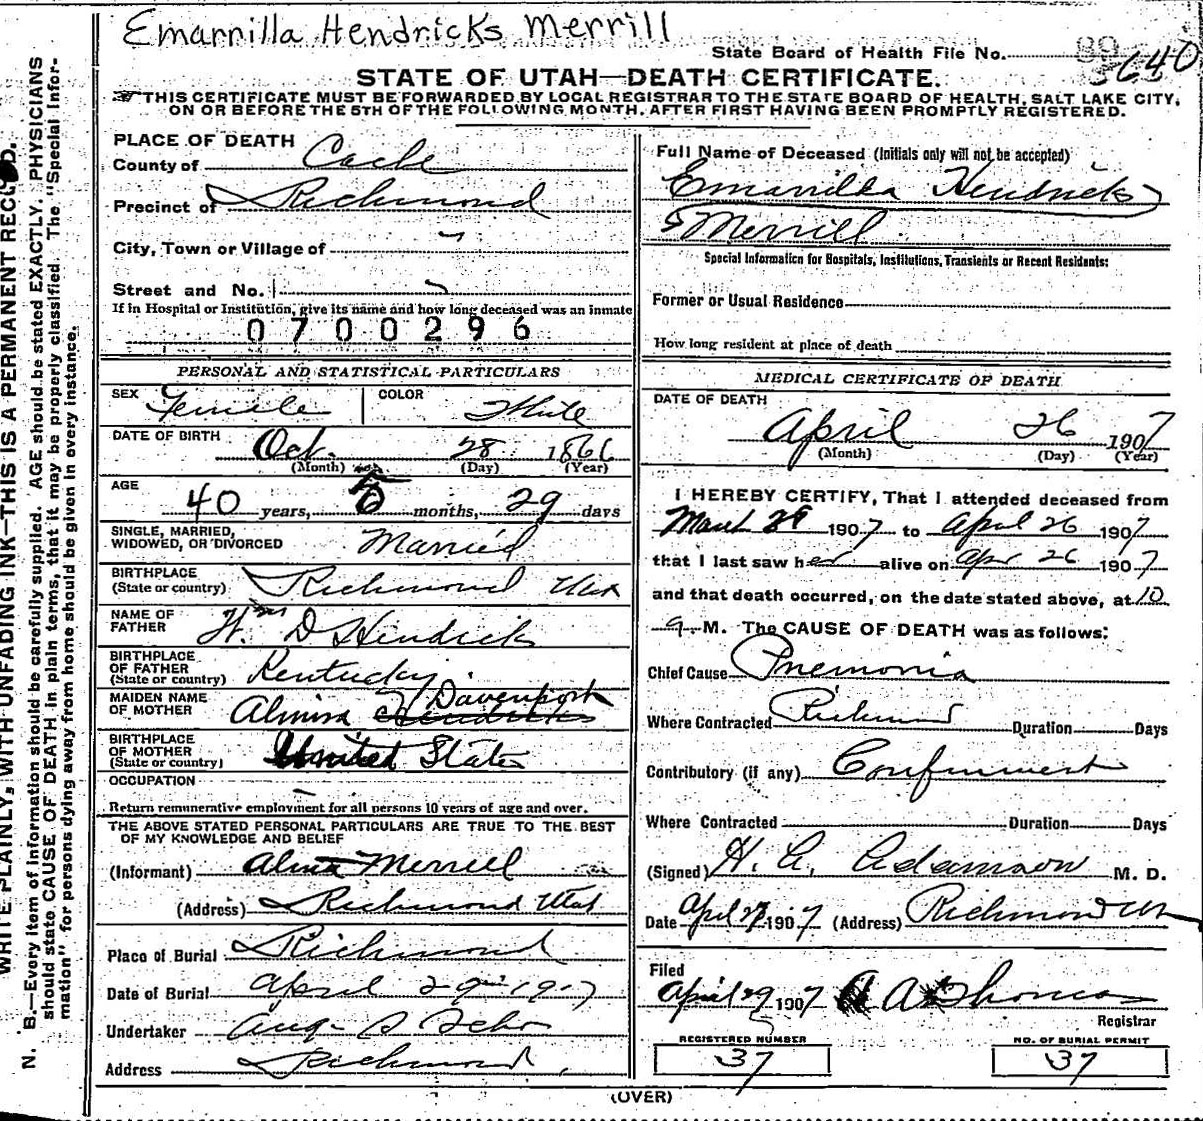 Emarrilla Hendricks Merrill
State Board of Health File No. 3640
STATE OF UTAH—DEATH CERTIFICATE.
THIS CERTIFICATE MUST BE FORWARDED BY LOCAL REGISTRAR TO THE STATE BOARD OF HEALTH, SALT LAKE CITY,
ON OR BEFORE THE 5TH OF THE FOLLOWING MONTH, AFTER FIRST HAVING BEEN PROMPTLY REGISTERED.
PLACE OF DEATH
County of Cache
Precinct of Richmond
City, Town or Village of
Street and No.
If in Hospital or Institution, give its name and how long deceased was an inmate
0700296
PERSONAL AND STATISTICAL PARTICULARS
SEX Female COLOR White
DATE OF BIRTH Oct. 28 1866
(Month) (Day) (Year)
AGE 40 years, months, 29 days
SINGLE, MARRIED,
WIDOWED, OR DIVORCED Married
BIRTHPLACE
(State or country) Richmond Utah
NAME OF
FATHER Wm D Hendricks
BIRTHPLACE
OF FATHER
(State or country) Kentucky
MAIDEN NAME
OF MOTHER Almira Hendricks Davenport
BIRTHPLACE
OF MOTHER
(State or country) United States
OCCUPATION
Return remunerative employment for all persons 10 years of age and over.
THE ABOVE STATED PERSONAL PARTICULARS ARE TRUE TO THE BEST
OF MY KNOWLEDGE AND BELIEF
(Informant) Merrill
(Address) Richmond Utah
Place of Burial Richmond
Date of Burial April 29 1907
Undertaker Aug. S
Address Richmond
Full Name of Deceased (Initials only will not be accepted)
Emarilla Hendricks
Merrill
Special Information for Hospitals, Institutions, Transients or Recent Residents:
Former or Usual Residence
How long resident at place of death
MEDICAL CERTIFICATE OF DEATH
DATE OF DEATH
April 26 1907
(Month) (Day) (Year)
I HEREBY CERTIFY, That I attended deceased from
March 28 1907 to April 26 1907
that I last saw her alive on Apr 26 1907
and that death occurred, on the date stated above, at 10
a M. The CAUSE OF DEATH was as follows:
Chief Cause Pnemonia
Where Contracted Richmond Duration Days
Contributory (if any) Confinment
Where Contracted Duration Days
(Signed) H. A. Adamson M. D.
Date April 27 1907 (Address) Richmond Ut
Filed
April 29 1907 A A Thomas
Registrar
REGISTERED NUMBER
37
NO. OF BURIAL PERMIT
37
(OVER)
WRITE PLAINLY, WITH UNFADING INK—THIS IS A PERMANENT RECORD.
N. B.—Every item of information should be carefully supplied. AGE should be stated EXACTLY. PHYSICIANS
should state CAUSE OF DEATH in plain terms, that it may be properly classified. The "Special Infor-
mation" for persons dying away from home should be given in every instance.